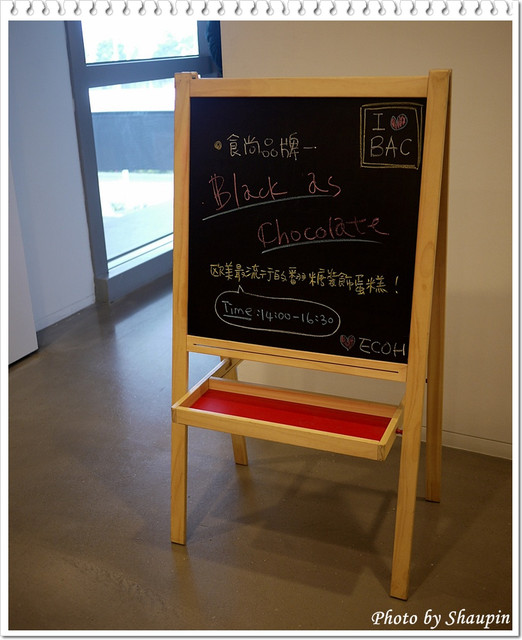 I ♥
BAC
食尚品牌－
Black as
Chocolate
歐美最流行的翻糖裝飾蛋糕！
Time:14:00-16:30
♥ ECOH
Photo by Shaupin